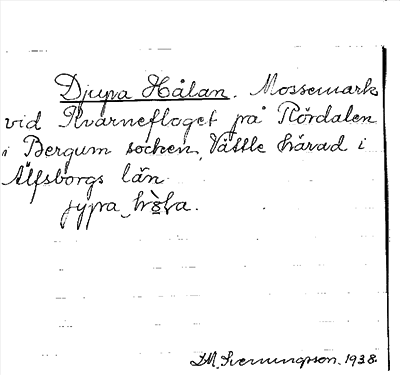 Djupa Hålan. Mossemark
vid Kvarnefloget på Rördalen
i Bergum socken, Vättle härad i
Älfsborgs län.
jypa
D.M. Svenningsson. 1938.